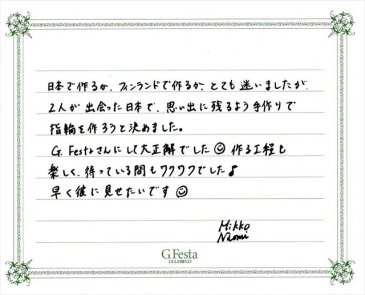 日本で作るか、フィンランドで作るか、とても迷いましたが、
2人が出会った日本で、思い出に残るよう手作りで
指輪を作ろうと決めました。
G.Festaさんにして大正解でした☺ 作る工程も
楽しく、待っている間もワクワクでした♪
早く彼に見せたいです☺
Mikko
Naomi
G.Festa
DIAMOND